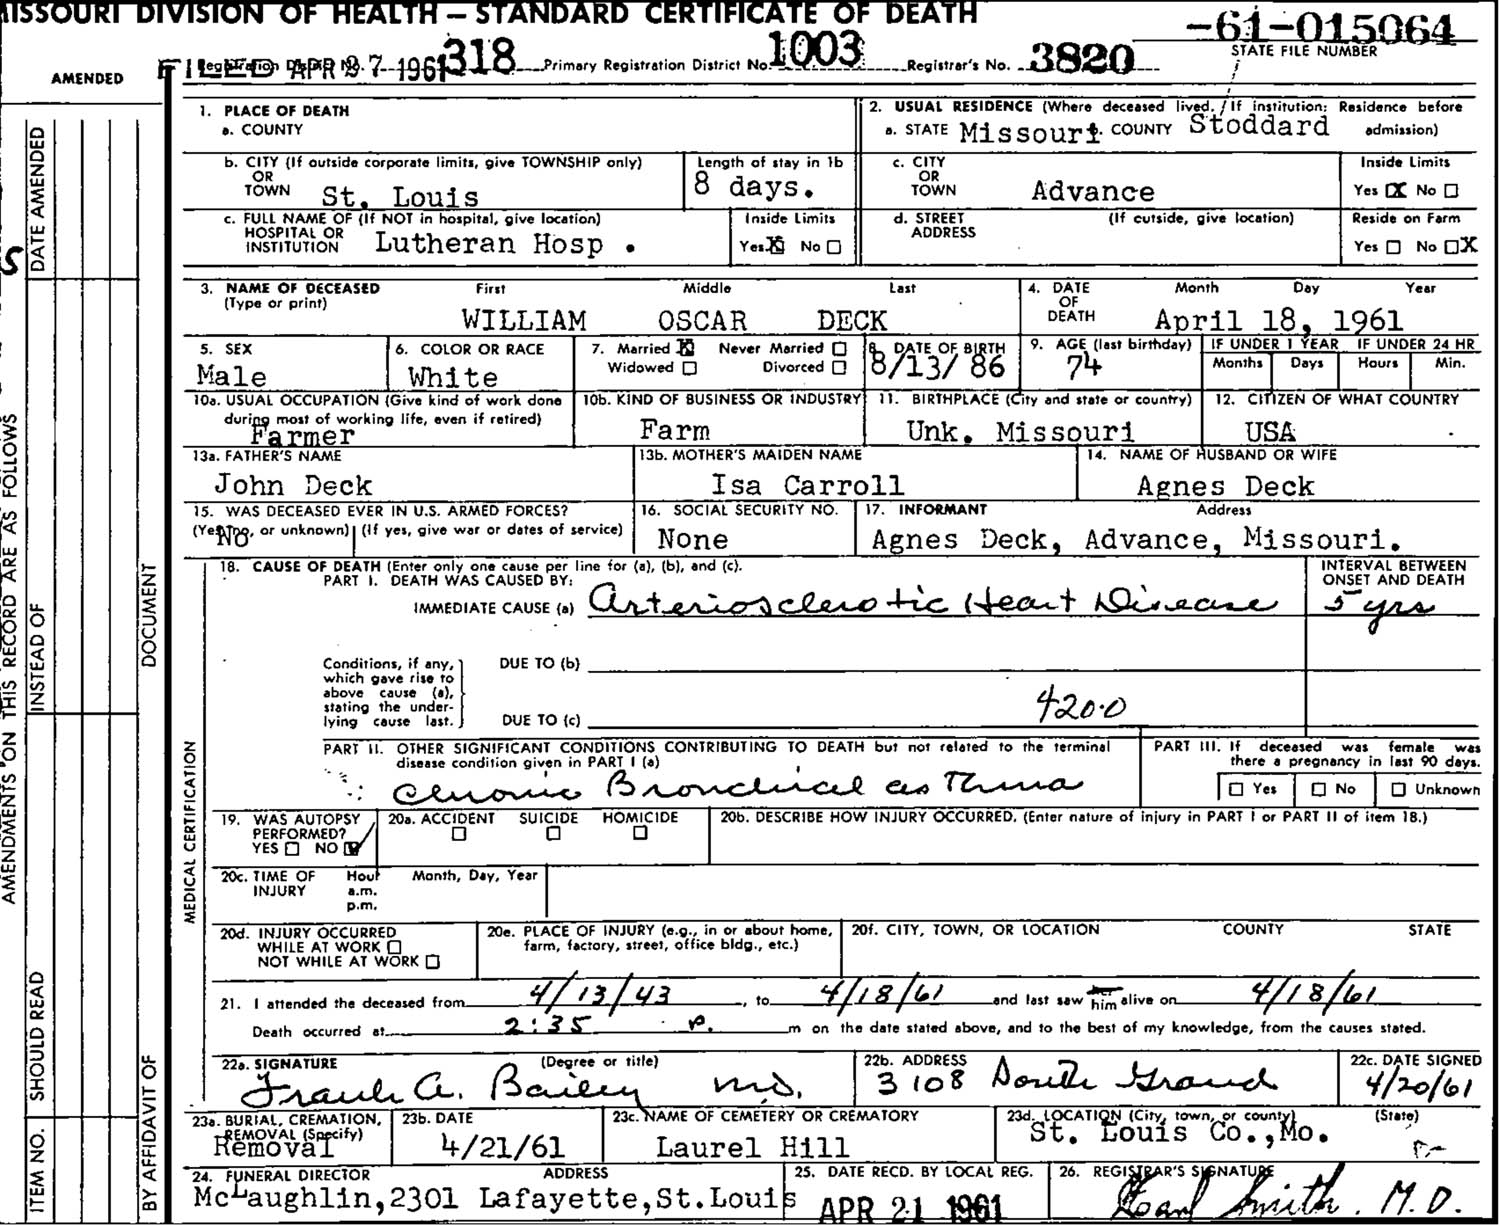 MISSOURI DIVISION OF HEALTH — STANDARD CERTIFICATE OF DEATH
-61-015064
STATE FILE NUMBER
AMENDED
FILED APR 27 1961
Registration District No. 318 Primary Registration District No. 1003 Registrar's No. 3820
1. PLACE OF DEATH
a. COUNTY
2. USUAL RESIDENCE (Where deceased lived. If institution: Residence before admission)
a. STATE Missouri b. COUNTY Stoddard
b. CITY (If outside corporate limits, give TOWNSHIP only)
OR
TOWN St. Louis
Length of stay in 1b
8 days.
c. CITY
OR
TOWN Advance
Inside Limits
Yes X No
c. FULL NAME OF (If NOT in hospital, give location)
HOSPITAL OR
INSTITUTION Lutheran Hosp .
Inside Limits
Yes X No
d. STREET
ADDRESS
(If outside, give location)
Reside on Farm
Yes No X
3. NAME OF DECEASED
(Type or print)
First Middle Last
WILLIAM OSCAR DECK
4. DATE
OF
DEATH
Month Day Year
April 18, 1961
5. SEX
Male
6. COLOR OR RACE
White
7. Married X Never Married
Widowed Divorced
8. DATE OF BIRTH
8/13/86
9. AGE (last birthday)
74
IF UNDER 1 YEAR IF UNDER 24 HR
Months Days Hours Min.
10a. USUAL OCCUPATION (Give kind of work done
during most of working life, even if retired)
Farmer
10b. KIND OF BUSINESS OR INDUSTRY
Farm
11. BIRTHPLACE (City and state or country)
Unk. Missouri
12. CITIZEN OF WHAT COUNTRY
USA
13a. FATHER'S NAME
John Deck
13b. MOTHER'S MAIDEN NAME
Isa Carroll
14. NAME OF HUSBAND OR WIFE
Agnes Deck
15. WAS DECEASED EVER IN U.S. ARMED FORCES?
(Yes, no, or unknown) (If yes, give war or dates of service)
No
16. SOCIAL SECURITY NO.
None
17. INFORMANT Address
Agnes Deck, Advance, Missouri.
18. CAUSE OF DEATH (Enter only one cause per line for (a), (b), and (c).
PART I. DEATH WAS CAUSED BY:
IMMEDIATE CAUSE (a) Arteriosclerotic Heart Disease
INTERVAL BETWEEN
ONSET AND DEATH
5 yrs
Conditions, if any,
which gave rise to
above cause (a),
stating the under-
lying cause last.
DUE TO (b)
DUE TO (c)
420.0
PART II. OTHER SIGNIFICANT CONDITIONS CONTRIBUTING TO DEATH but not related to the terminal
disease condition given in PART I (a)
Chronic Bronchical asthma
PART III. If deceased was female was
there a pregnancy in last 90 days.
Yes No Unknown
19. WAS AUTOPSY
PERFORMED?
YES NO
20a. ACCIDENT SUICIDE HOMICIDE
20b. DESCRIBE HOW INJURY OCCURRED. (Enter nature of injury in PART I or PART II of item 18.)
20c. TIME OF
INJURY
Hour
a.m.
p.m.
Month, Day, Year
20d. INJURY OCCURRED
WHILE AT WORK
NOT WHILE AT WORK
20e. PLACE OF INJURY (e.g., in or about home,
farm, factory, street, office bldg., etc.)
20f. CITY, TOWN, OR LOCATION COUNTY STATE
21. I attended the deceased from 4/13/43, to 4/18/61 and last saw her him alive on 4/18/61
Death occurred at 2:35 P. m on the date stated above, and to the best of my knowledge, from the causes stated.
22a. SIGNATURE (Degree or title)
Frank A. Bailey MD.
22b. ADDRESS
3108 South Grand
22c. DATE SIGNED
4/20/61
23a. BURIAL, CREMATION,
REMOVAL (Specify)
Removal
23b. DATE
4/21/61
23c. NAME OF CEMETERY OR CREMATORY
Laurel Hill
23d. LOCATION (City, town, or county) (State)
St. Louis Co.,Mo.
24. FUNERAL DIRECTOR ADDRESS
McLaughlin,2301 Lafayette,St.Louis
25. DATE RECD. BY LOCAL REG.
APR 21 1961
26. REGISTRAR'S SIGNATURE
Earl Smith. M.D.
MEDICAL CERTIFICATION
AMENDMENTS ON THIS RECORD ARE AS FOLLOWS
DATE AMENDED
INSTEAD OF
SHOULD READ
ITEM NO.
DOCUMENT
BY AFFIDAVIT OF